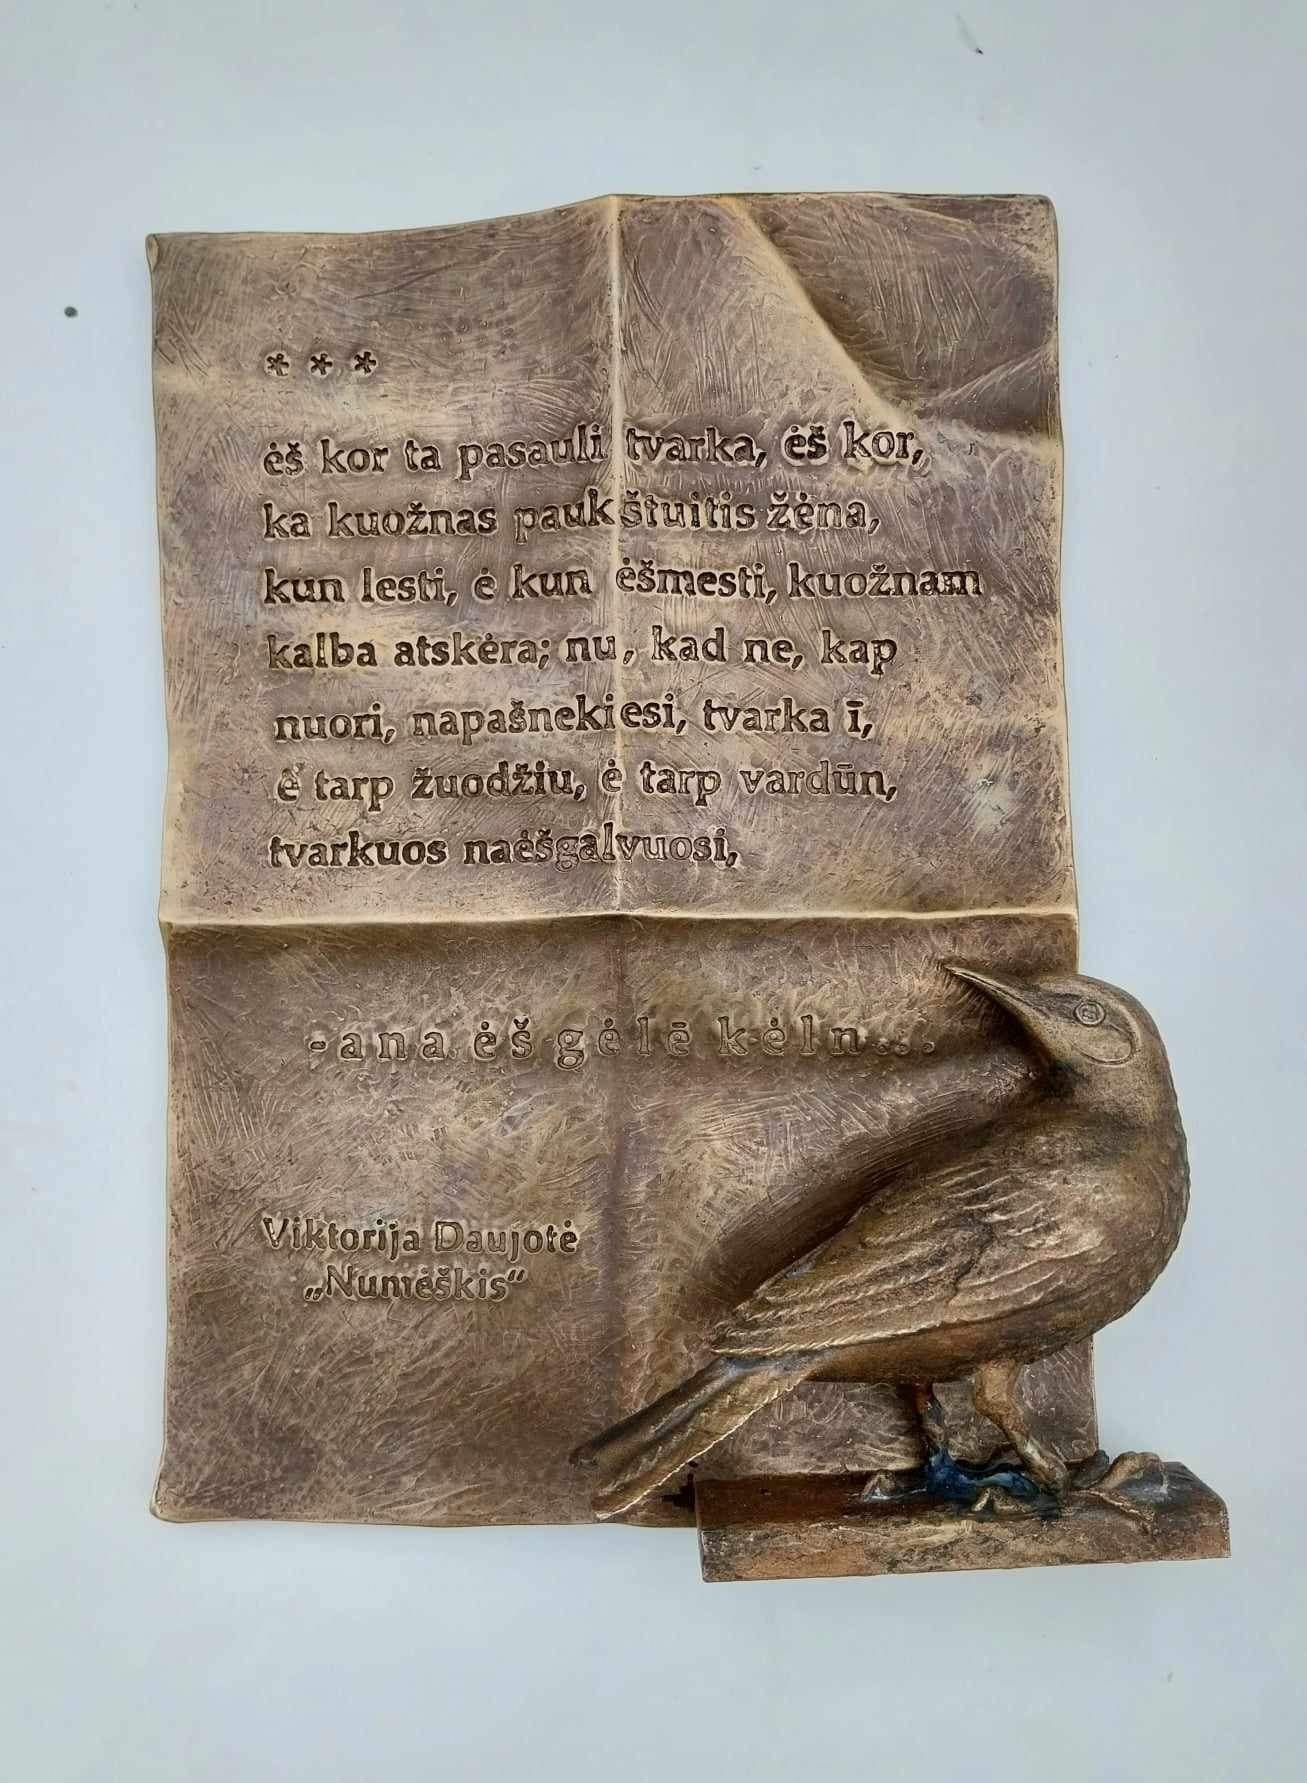 * * *
ėš kor ta pasauli tvarka, ėš kor,
ka kuožnas paukštuitis žėna,
kun lesti, ė kun ėšmesti, kuožnam
kalba atskėra; nu, kad ne, kap
nuori, napašnekiesi, tvarka ī,
ė tarp žuodžiu, ė tarp vardūn,
tvarkuos naėšgalvuosi,
- ana ėš gėlē kėln...
Viktorija Daujotė
„Numėškis“